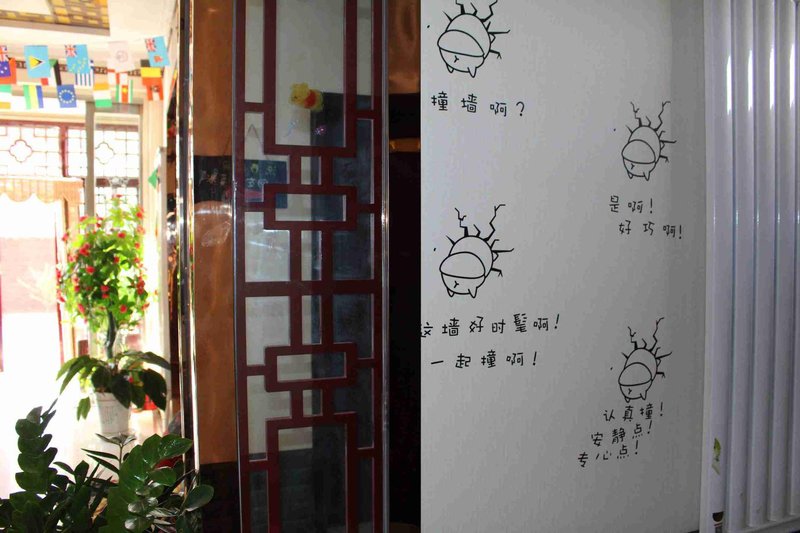 撞墙啊?
是啊!
好巧啊!
这墙好时髦啊!
一起撞啊!
认真撞!
安静点!
专心点!